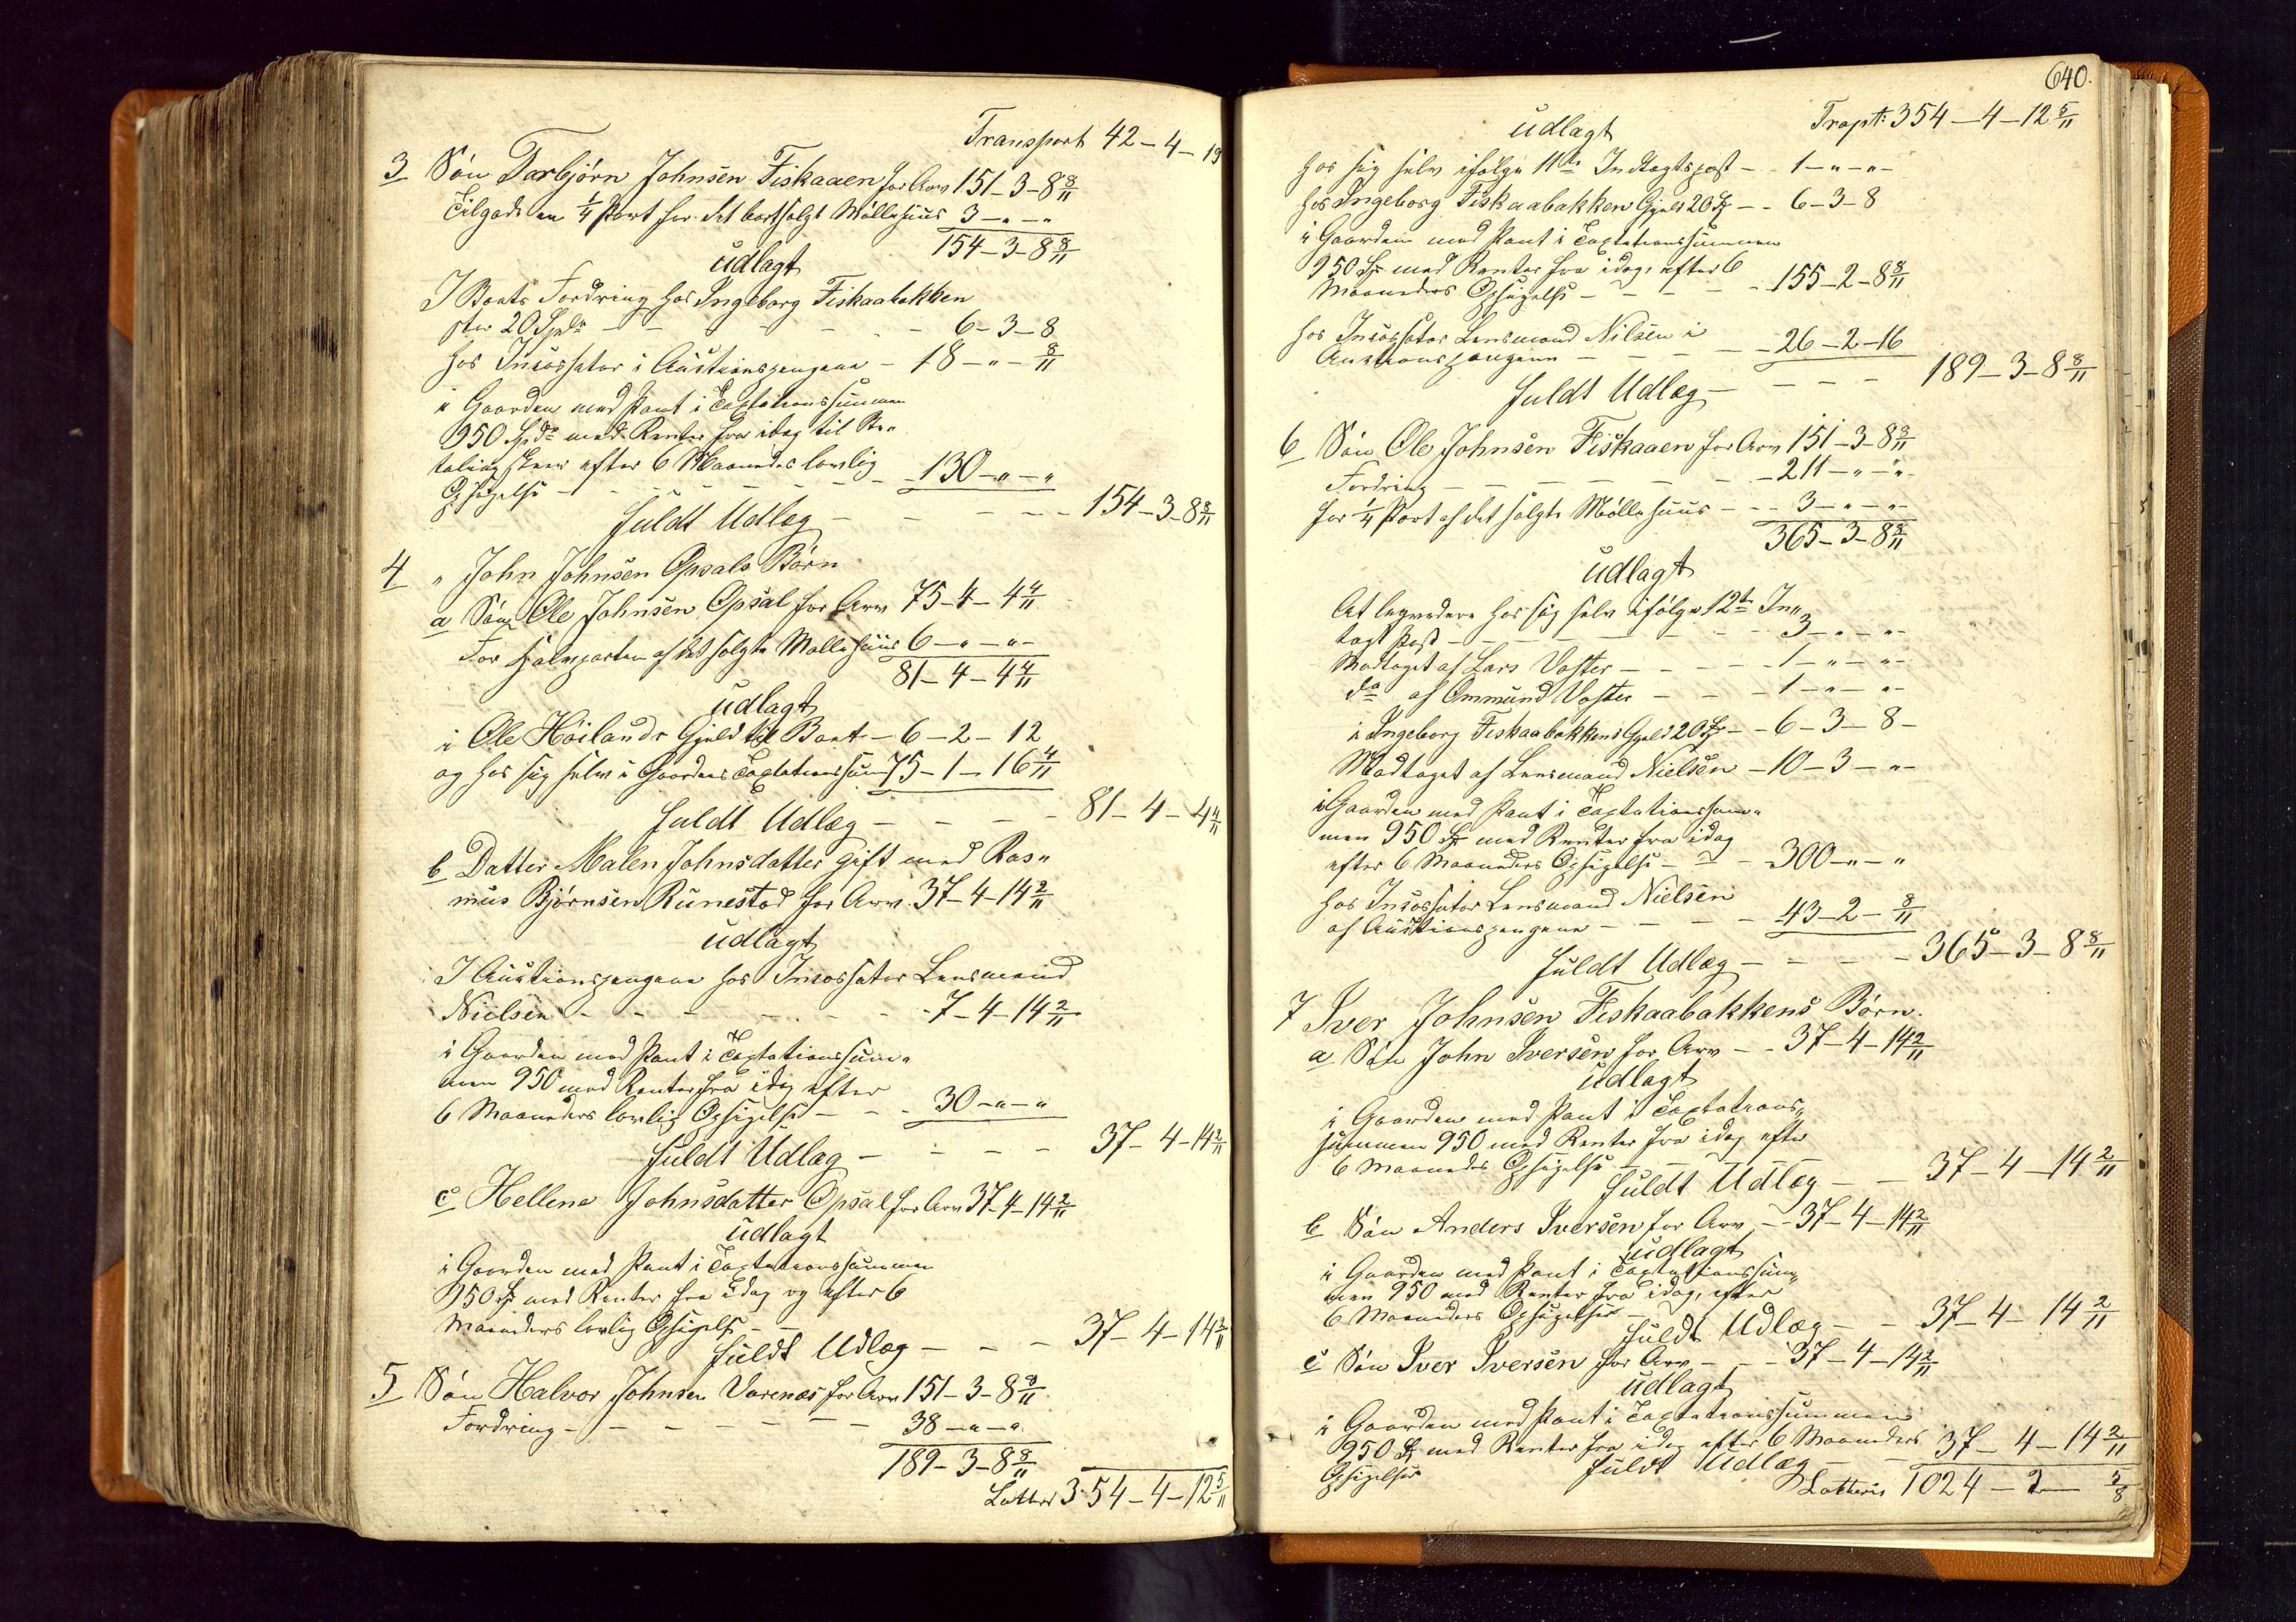 Transport 42-4-19
3 Søn Torbjørn Johnsen Fiskaaen for Arv 151-3-8 8/11
Tilgode en 1/4 Part for det bortsolgt Møllehuus 3-"-"
154-3-8 8/11
udlagt
I Boets Fordring hos Ingeborg Fiskaabakken
stor 20 Spdr - - - - - 6-3-8
hos Incassator i Auctionspengene - 18-"-8/11
i Gaarden med Pant i Taxtationssummen
950 Spdr med Renter fra idag til Be"
taling skeer efter 6 Maaneders lovlig
Opsigelse - - - - - 130-"-"
fuldt Udlæg - - - - 154-3-8 8/11
4 " John Johnsen Opsals Børn
a Søn Ole Johnsen Opsal for Arv 75-4-4 4/11
For Halvparten af det solgte Møllehuus 6-"-"-
81-4-4 4/11
udlagt
i Ole Høilands Gjeld til Boet - 6-2-12
og hos sig selv i Gaardens Taxtationssum 75-1-16 4/11
fuldt Udlæg - - - - 81-4-4 4/11
b Datter Malen Johnsdatter gift med Ras"
mus Bjørnsen Runestad for Arv 37-4-14 2/11
udlagt
I Auctionspengene hos Incassator Lensmand
Nielsen - - - - - 7-4-14 2/11
i Gaarden med Pant i Taxtationssum"
men 950 med Renter fra idag efter
6 Maaneders lovlig Opsigelse - - - 30-"-"
fuldt Udlæg - - - - 37-4-14 2/11
c Hellene Johnsdatter Opsal for Arv 37-4-14 2/11
udlagt
i Gaarden med Pant i Taxtationssummen
950 Sp med Renter fra idag og efter 6
Maaneders lovlig Opsigelse - -
fuldt Udlæg - - - 37-4-14 2/11
5 Søn Halvor Johnsen Varenes for Arv 151-3-8 8/11
Fordring - - - - - - 38-"-"
189-3-8 8/11
Latus 354-4-12 5/11
640.
Trspt: 354-4-12 5/11
udlagt
hos sig selv ifølge 11te Indtægtspost - - 1-"-"-
hos Ingeborg Fiskaabakken Gjeld 20 Sp - - 6-3-8
i Gaarden med Pant i Taxtationssummen
950 Sp med Renter fra idag, efter 6
Maaneders Opsigelse - - - - - 155-2-8 8/11
hos Incassator Lensmand Nilsen i
Auktionspengene - - - - - 26-2-16
fuldt Udlæg - - - - 189-3-8 8/11
6 Søn Ole Johnsen Fiskaaen for Arv 151-3-8 8/11
Fordring - - - - - - 211-"-"-
for 1/4 Part af det solgte Møllehuus - - 3-"-"-
365-3-8 8/11
udlagt
At legvedere hos sig selv ifølge 12te In"
tægt Post - - - - - - 3-"-"-
Modtaget af Lars Voster - - - - 1-"-"-
do af Ommund Voster - - - 1-"-"-
i Ingeborg Fiskaabakkens Gjeld 20 Sp - - 6-3-8-
Modtaget af Lensmand Nielsen - 10-3-"-
i Gaarden med Pant i Taxtationssum"
men 950 Sp med Renter fra idag
efter 6 Maaneders Opsigelse - - - 300-"-"
hos Incassator Lensmand Nielsen
af Auctionspengene - - - - 43-2-8/11
fuldt Udlæg - - - - 365-3-8 8/11
7 Iver Johnsen Fiskaabakkens Børn.
a Søn John Iversen for Arv - - 37-4-14 2/11
udlagt
i Gaarden med Pant i Taxtations"
summen 950 med Renter fra idag efter
6 Maaneders Opsigelse - -
fuldt Udlæg - - 37-4-14 2/11
b Søn Anders Iversen for Arv - - 37-4-14 2/11
udlagt
i Gaarden med Pant i Taxtationssum"
men 950 med Renter fra idag, efter
6 Maaneders Opsigelse -
fuldt Udlæg - - 37-4-14 2/11
c Søn Iver Iversen for Arv - - - 37-4-14 2/11
udlagt
i Gaarden med Pant i Taxtationssummen
950 Sp med Renter fra idag efter 6 Maaneders
Opsigelse fuldt Udlæg - - 37-4-14 2/11
Latteris 1024-2- 5/8